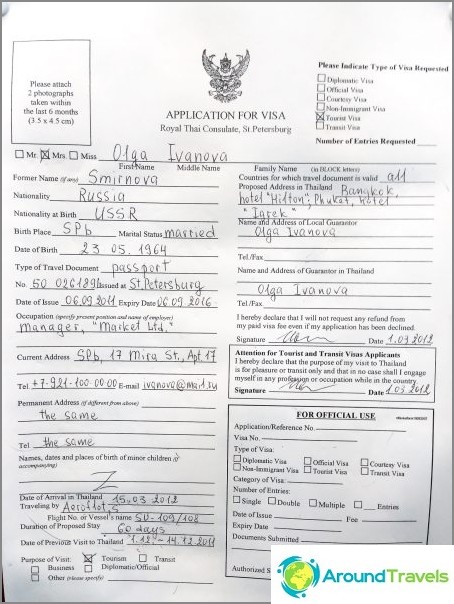 Please attach
2 photographs
taken within
the last 6 months
(3.5 x 4.5 cm)
APPLICATION FOR VISA
Royal Thai Consulate, St.Petersburg
Please Indicate Type of Visa Requested
Diplomatic Visa
Official Visa
Courtesy Visa
Non-Immigrant Visa
Tourist Visa
Transit Visa
Number of Entries Requested
Mr. Mrs. Miss Olga Ivanova
First Name Middle Name Family Name (in BLOCK letters)
Former Name (if any) Smirnova
Nationality Russia
Nationality at Birth USSR
Birth Place SPb Marital Status married
Date of Birth 23 05. 1964
Type of Travel Document passport
No. 50 026189 Issued at St.Petersburg
Date of Issue 06.09 2011 Expiry Date 06.09 2016
Occupation (specify present position and name of employer)
manager, "Market Ltd."
Current Address SPb, 17 Mira St., Apt.17
Tel +7-921-100 00 00 E-mail ivanova@mail.ru
Permanent Address (if different from above)
the same
Tel the same
Names, dates and places of birth of minor children (if
accompanying)
Z
Date of Arrival in Thailand 15.03 2012
Traveling by Aeroflot,s
Flight No. or Vessel's name SU-109/108
Duration of Proposed Stay 60 days
Date of Previous Visit to Thailand 1.12 - 14.12 2011
Purpose of Visit: Tourism Transit
Business Diplomatic/Official
Other (please specify)
Countries for which travel document is valid all
Proposed Address in Thailand Bangkok,
hotel "Hilton"; Phuket, hotel
"Igrek"
Name and Address of Local Guarantor
Olga Ivanova
Tel./Fax
Name and Address of Guarantor in Thailand
Olga Ivanova
Tel./Fax
I hereby declare that I will not request any refund from
my paid visa fee even if my application has been declined.
Signature Date 1.03 2012
Attention for Tourist and Transit Visas Applicants
I hereby declare that the purpose of my visit to Thailand
is for pleasure or transit only and that in no case shall I engage
myself in any profession or occupation while in the country.
Signature Date 1.03 2012
FOR OFFICIAL USE
Application/Reference No.
Visa No.
Type of Visa:
Diplomatic Visa Official Visa Courtesy Visa
Non-Immigrant Visa Tourist Visa Transit Visa
Category of Visa:
Number of Entries:
Single Double Multiple Entries
Date of Issue Fee
Expiry Date
Documents Submitted
Authorized S
AroundTravels